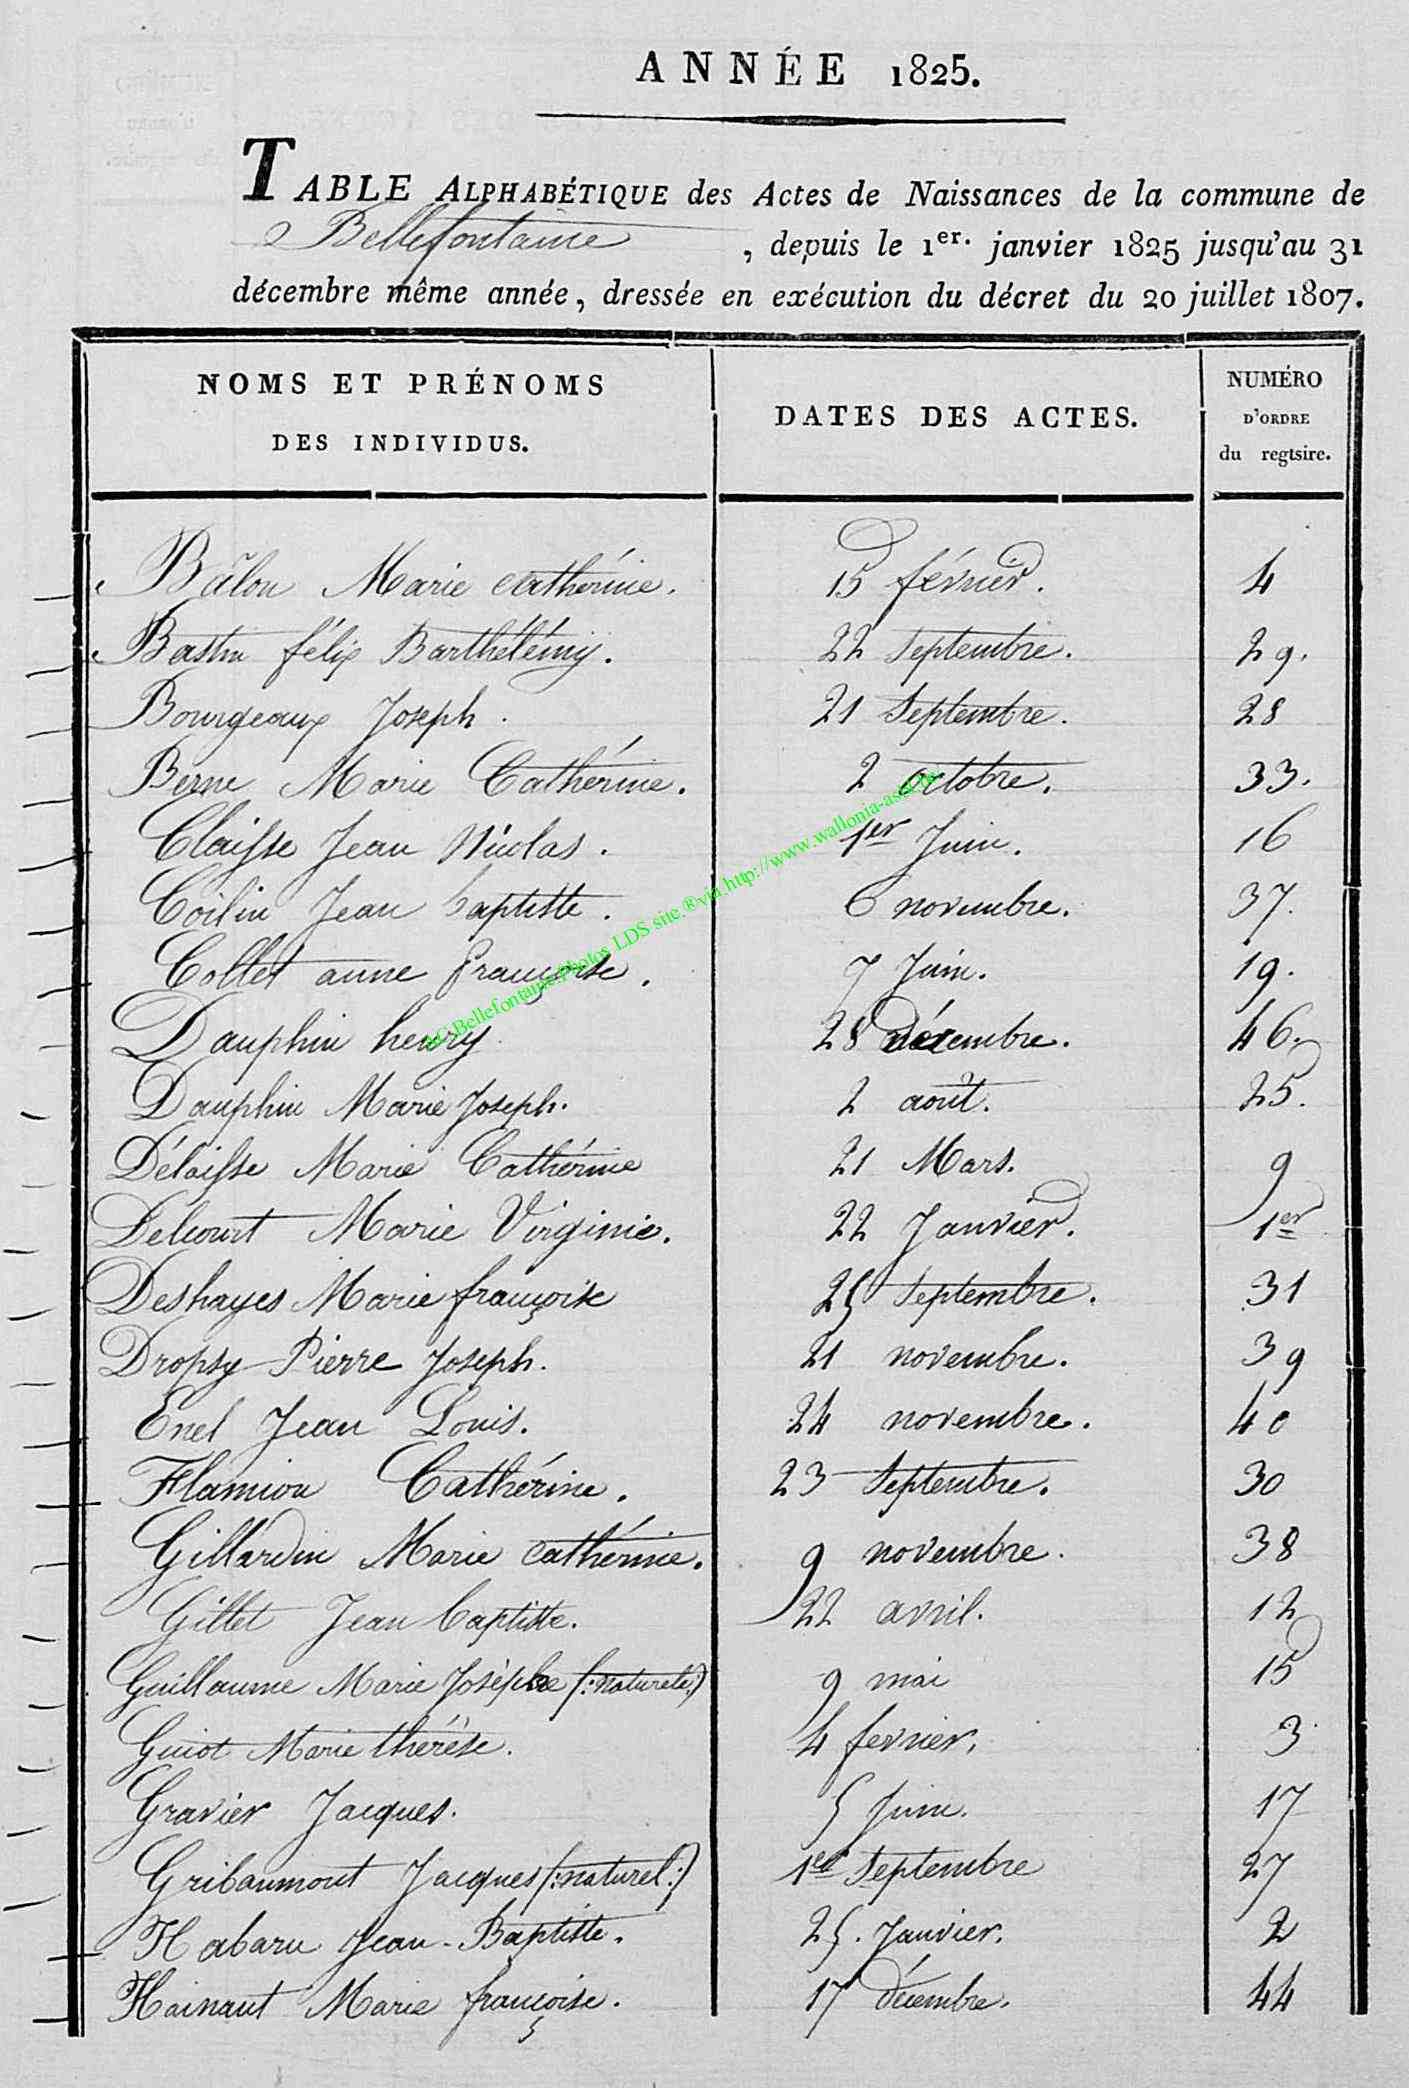 ANNÉE 1825.
TABLE ALPHABÉTIQUE des Actes de Naissances de la commune de
Bellefontaine, depuis le 1er. janvier 1825 jusqu'au 31
décembre même année, dressée en exécution du décret du 20 juillet 1807.
NOMS ET PRÉNOMS
DES INDIVIDUS.
DATES DES ACTES.
NUMÉRO
D'ORDRE
du regtsire.
Bâlon Marie Cathérine. 15 février. 4
Bastin félix Barthélémy. 22 Septembre. 29.
Bourgeaux Joseph. 21 Septembre. 28
Berne Marie Cathérine. 2 octobre. 33.
Claisse Jean Nicolas. 1er Juin. 16
Coilin Jean baptiste. 6 novembre. 37.
Collet anne françoise. 7 Juin. 19.
Dauphin henry 28 décembre. 46.
Dauphin Marie Joseph. 2 août. 25.
Délaisse Marie Cathérine 21 Mars. 9
Delcourt Marie Virginie. 22 Janvier. 1er
Deshayes Marie françoise 25 Septembre. 31
Dropsy Pierre Joseph. 21 novembre. 39
Enel Jean Louis. 24 novembre. 40
Flamion Cathérine. 23 Septembre. 30
Gillardin Marie Cathérine. 9 novembre. 38
Gillet Jean baptiste. 22 avril. 12
Guillaume Marie Joséphe (:naturele:) 9 mai 15
Guiot Marie thérèse. 4 fevrier. 3
Gravier Jacques. 5 Juin. 17
Gribaumont Jacques (:naturel:) 1er Septembre 27
Habaru Jean-Baptiste. 25. Janvier. 2
Hainaut Marie françoise. 17 décembre. 44